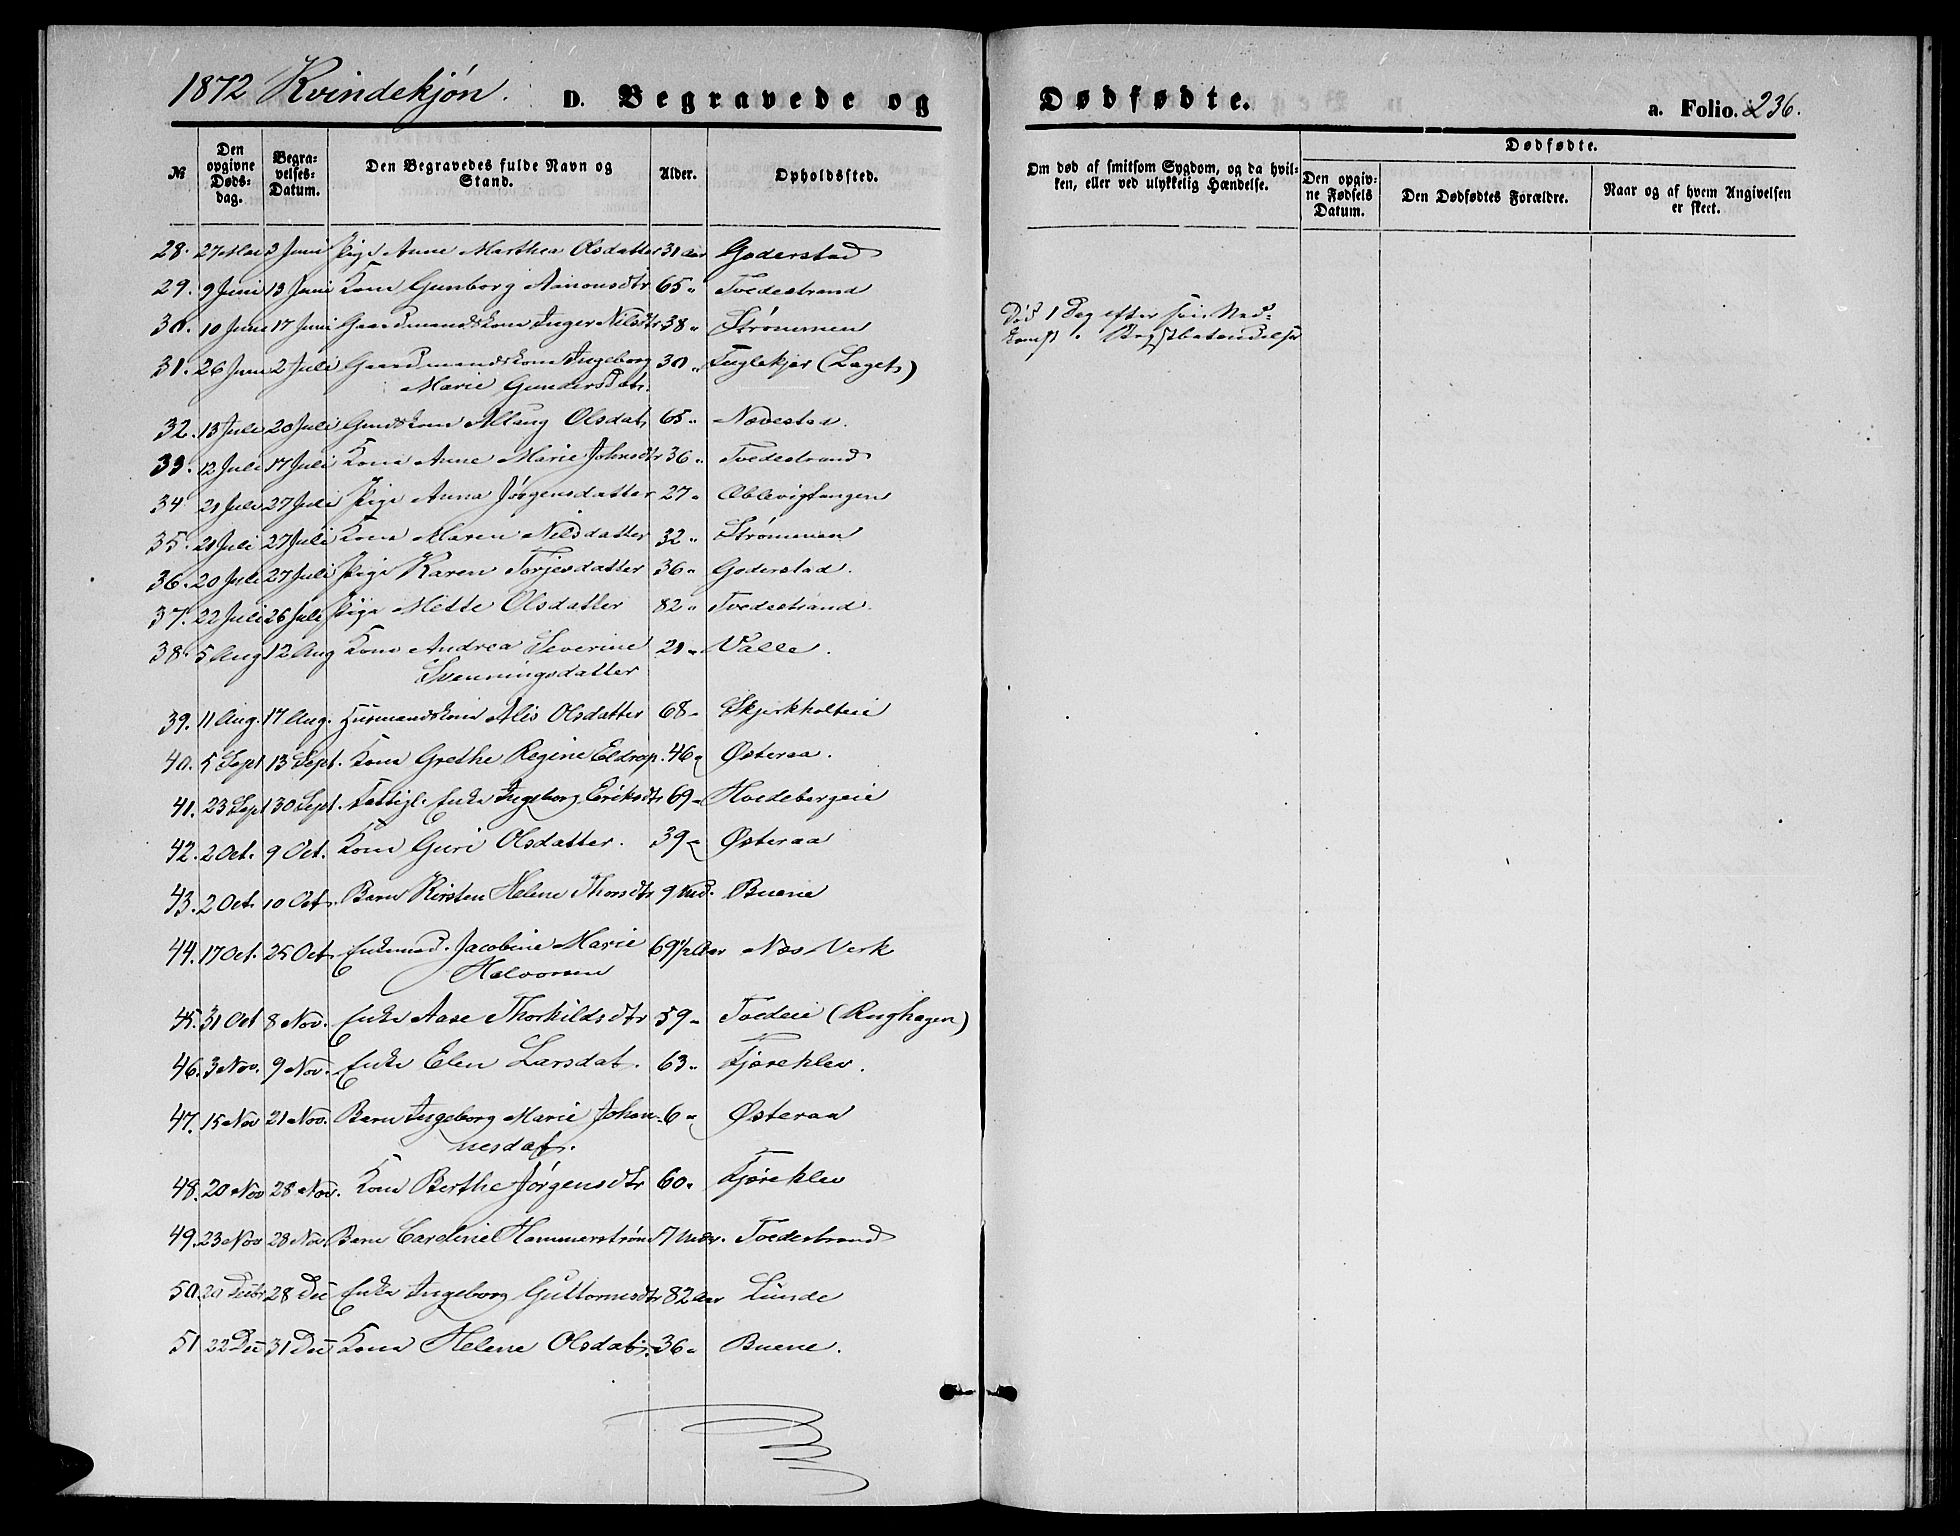 1872 Kvindekjøn. D. Begravede og Dødfødte. a. Folio. 236.
№ Den opgivne Døds-dag. Begra-velses-Datum. Den Begravedes fulde Navn og Stand. Alder. Opholdssted. Om død af smitsom Sygdom, og da hvil-ken, eller ved ulykkelig Hændelse. Dødfødte. Den opgiv-ne Fødsels Datum. Den Dødfødtes Forældre. Naar og af hvem Angivelsen er skeet.
28. 27 Mai 2 Juni Pige Anne Marthea Olsdatter 31 Aar Goderstad
29. 9 Juni 13 Juni Kone Gunborg Aanonsdtr 65 " Tvedestrand
30. 10 Juni 17 Juni Gaardmandskone Inger Nilsdtr 38 " Strømmen Død 1 Dag efter sin Ned-
komst.
31. 26 Juni 2 Juli Gaardmandskone Ingeborg 30 " Fuglekjer (Laget)
Marie Gundersdat.
32. 13 Juli 20 Juli Olsdat. 65 " Nævestad.
33. 12 Juli 17 Juli Kone Anne Marie Johnsdtr 36 " Tvedestrand
34 21 Juli 27 Juli Pige Anna Jørgensdatter 27 "
35. 21 Juli 27 Juli Kone Maren Nilsdatter 32 " Strømmen
36. 20 Juli 27 Juli Pige Karen Torjesdatter 36 " Goderstad.
37. 22 Juli 26 Juli Pige Mette Olsdatter 82 " Tvedestrand.
38. 5 Aug 12 Aug Kone Andrea Severine 21 " Valle.
Svenningsdatter
39. 11 Aug. 17 Aug. Husmandskone Alis Olsdatter 68 " Skjerkholteie
40. 5 Sept 13 Sept. Kone Grethe Regine Eldrop. 46 " Østeraa.
41. 23 Sept 30 Sept. Fattigl. Enke Ingeborg Eriksdtr 69 " Hvedebergeie
42. 2 Oct. 9 Oct. Kone Guri Olsdatter. 39 " Østeraa
43. 2 Oct. 10 Oct. Barn Kirsten Helene Thorsdtr 9 Md. Buene
44. 17 Oct. 25 Oct. Enkemad. Jacobine Marie 69½ Aar Næs Verk
Halvorsen
45. 31 Oct 8 Nov. Enke Aase Thorkildsdtr 59 " Tvedeie (Rughagen)
46. 3 Nov. 9 Nov. Enke Elen Larsdat. 63 " Fjæreklev.
47. 15 Nov 21 Nov. Barn Ingeborg Marie Johan- 6 " Østeraa
nesdat.
48. 20 Nov 28 Nov. Kone Berthe Jørgensdtr 60 " Fjæreklev
49. 23 Nov 28 Nov. Barn Caroline Hammerstrøm 7 Mdr. Tvedestrand
50. 20 Decbr 28 Dec Enke Ingeborg Guttormsdtr 82 Aar Lunde
51 22 Dec 31 Dec Kone Helene Olsdat. 36 " Buene.